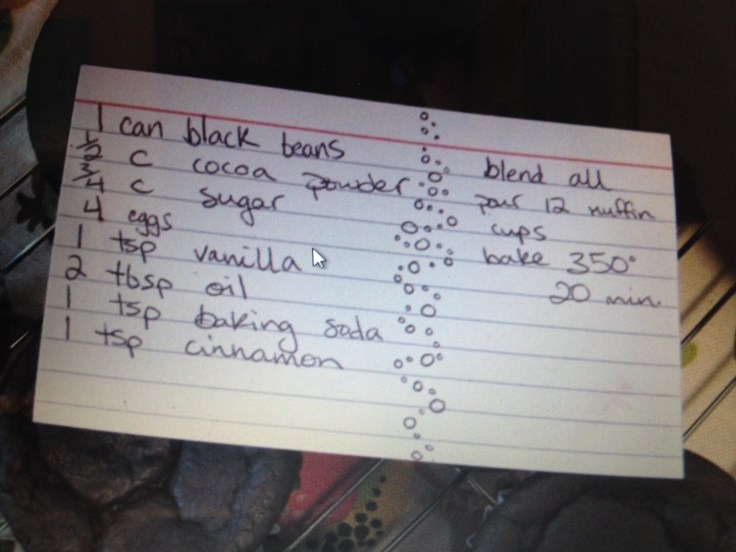 1 can black beans
1/2 c cocoa powder
3/4 c sugar
4 eggs
1 tsp vanilla
2 tbsp oil
1 tsp baking soda
1 tsp cinnamon
blend all
pour 12 muffin
cups
bake 350°
20 min.